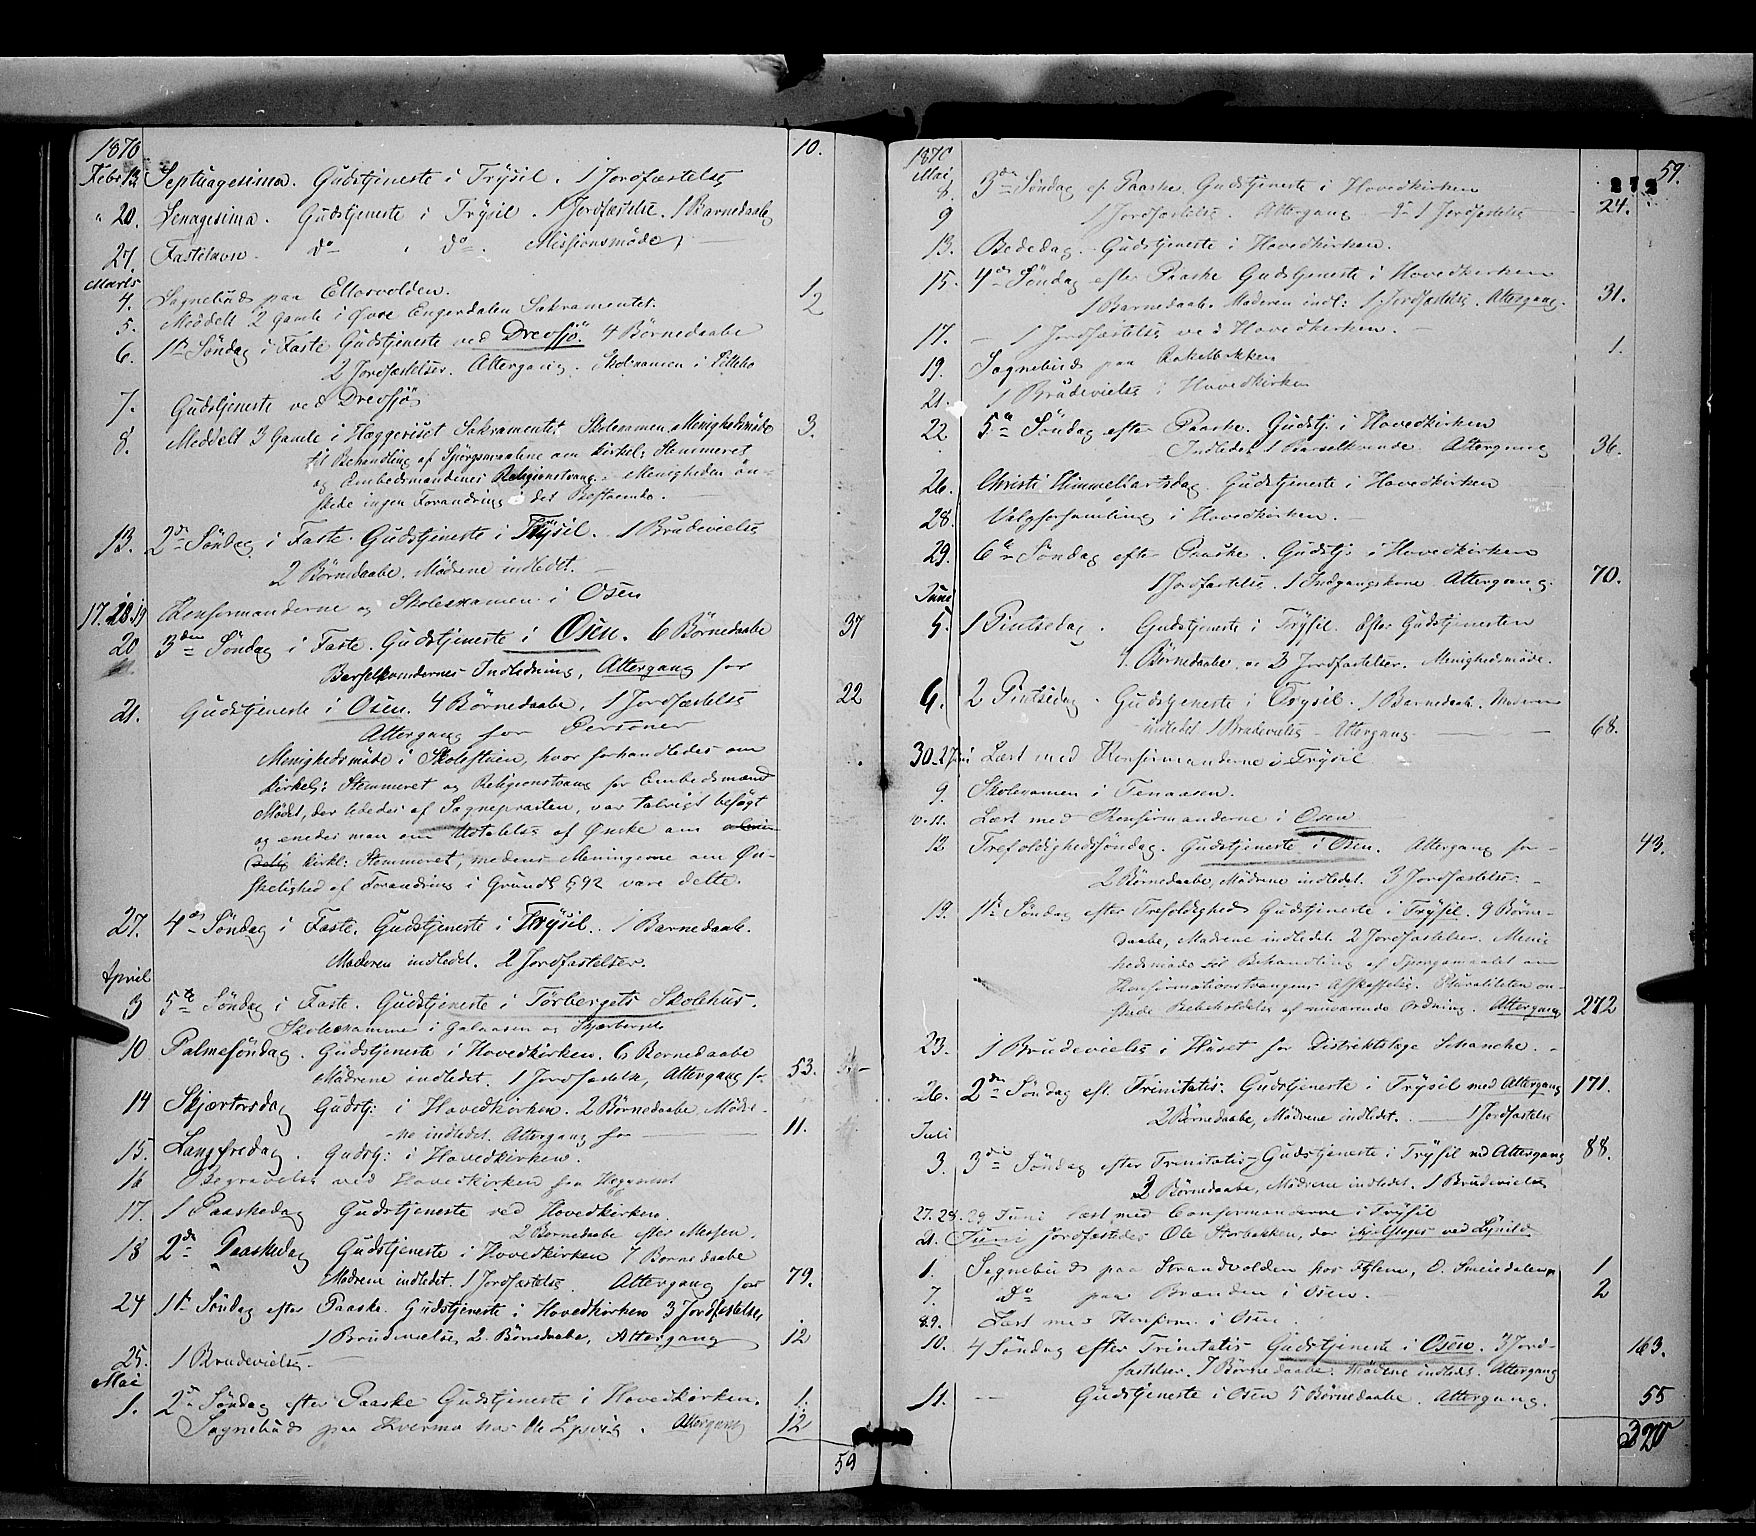 1870 10.
Febr 13 Septuagesima. Gudstjeneste i Trysil. 1 Jordfæstelse
" 20. Sexagesima. Gudstjeneste i Trysil. 1 Jordfæstelse. 1 Barnedaab
27. Fastelavn. do do. Missionsmøde
Marts
4. Sognebud paa Ellasvolden. 1
5. Meddelt 2 Gamle i Øvre Engerdalen Sakramentet. 2
6. 1te Søndag i Faste Gudstjeneste ved Drevsjø. 4 Børnedaabe
2 Jordfæstelser. Altergang. Skolexamen i
7. Gudstjeneste ved Drevsjø
8. Meddelt 3 Gamle i Heggeriset Sakramentet. Skolexamen. Menighedsmøde 3.
til Behandling af Spørgsmaalene om kirkel: Stemmeret
og Embedsmændenes Religionstvang. Menigheden øn-
skede ingen Forandring i det Bestaaende.
13. 2den Søndag i Faste. Gudstjeneste i Trysil. 1 Brudevielse
2 Børnedaabe. Mødrene indledet.
17. 18 19 Konfirmanderne og Skolexamen i Osen
20 3den Søndag i Faste. Gudstjeneste i Osen. 6 Børnedaabe 37
Barselkvindernes Indledning, Altergang for
21. Gudstjeneste i Osen. 4 Børnedaabe, 1 Jordfæstelse 22
Altergang for Personer
Menighedsmøde i Skolestuen, hvor forhandledes om
kirkel: Stemmeret og Religionstvang for Embedsmænd
Mødet, der lededes af Sognepresten, var talrigt besøgt
og enedes man om Udtalelse af Ønske om
kirkl: Stemmeret, medens Meningerne om Øn-
skelighed af Forandring i Grundl § 92 vare delte.
27. 4de Søndag i Faste. Gudstjeneste i Trysil. 1 Barnedaab.
Moderen indledet. 2 Jordfæstelser.
April
3 5te Søndag i Faste. Gudstjeneste i Torbergets Skolehus.
Skolexamen i Galaasen og Skjærberget
10 Palmesøndag. Gudstjeneste i Hovedkirken. 6 Børnedaabe
Mødrene indledet. 1 Jordfæstelse, Altergang for 53.
14 Skjærtorsdag Gudstj: i Hovedkirken. 2 Børnedaabe. Mødre-
ne indledet. Altergang for 11.
15. Langfredag. Gudstj: i Hovedkirken.
16 Begravelse ved Hovedkirken fra
17. 1 Paaskedag Gudstjeneste ved Hovedkirken.
2 Børnedaabe efter Messen.
18 2den Paaskedag Gudstjeneste i Hovedkirken 7 Børnedaabe
Mødrene indledet. 1 Jordfæstelse. Altergang for 79.
24 1te Søndag efter Paaske. Gudstjeneste i Hovedkirken 3 Jordfæstelser
1 Brudevielse, 2 Børnedaabe, Altergang 12
25. 1 Brudevielse
Mai
1. 2den Søndag efter Paaske Gudstjeneste i Hovedkirken. 1.
Sognebud paa Kverma hos Ole. Altergang 12
59
1870 59.
272
Mai
8. 3den Søndag ef. Paaske. Gudstjeneste i Hovedkirken
9 1 Jordfæstelse. Altergang 1 Jordfæstelse 24.
13. Bededag. Gudstjeneste i Hovedkirken.
15. 4de Søndag efter Paaske Gudstjeneste i Hovedkirken
1 Barnedaab. Moderen indl: 1 Jordfæstelse. Altergang. 31.
17. 1 Jordfæstelse ved Hovedkirken.
19. Sognebud paa 1.
21. 1 Brudevielse i Hovedkirken
22 5te Søndag efter Paaske. Gudstj. i Hovedkirken
Indledet 1 Barselkvinde. Altergang 36.
26. Christi Himmelfartsdag. Gudstjeneste i Hovedkirken
28. Valgforsamling i Hovedkirken.
29. 6te Søndag efter Paaske. Gudstj: i Hovedkirken
1 Jordfæstelse. 1 Indgangskone. Altergang. 70.
Juni
5. 1 Pintsedag. Gudstjeneste i Trysil. Efter Gudstjenesten
9 Børnedaabe og 3 Jordfæstelser. Menighedsmøde.
6. 2 Pintsedag. Gudstjeneste i Trysil. 1 Barnedaab. Moderen
indledet 1 Brudevielse. Altergang. 68.
30. 2 Juni Læst med Konfirmanderne i Trysil
9. Skolexamen i Tenaasen.
10. 11. Læst med Konfirmanderne i Osen
12 Trefoldighedssøndag. Gudstjeneste i Osen. Altergang for 43.
2 Børnedaabe, Mødrene indledet. 3 Jordfæstelser.
19. 1te Søndag efter Trefoldighed Gudstjeneste i Trysil. 9 Børne-
daabe, Mødrene indledet. 2 Jordfæstelser. Menig
hedsmøde til Behandling af Spørgsmaalet om
Konfirmationstvangens Afskaffelse. Pluraliteten øn-
skede Beibeholdelse af nuværende Ordning. Altergang 272
23. 1 Brudevielse i Huset for Distriktslæge Schanche.
26. 2den Søndag eft. Trinitatis. Gudstjeneste i Trysil med Altergang 171.
2 Børnedaabe, Mødrene indledet. 1 Jordfæstelse
Juli
3. 3die Søndag efter Trinitatis. Gudstjeneste i Trysil med Altergang 88.
2 Børnedaabe, Mødrene indledet. 1 Brudevielse
27. 28. 29 Juni læst med Confirmanderne i Trysil
21. Juni Jordfæstedes Ole Storbakken, der ihjelsloges ved Lynild.
1. Sognebud paa Strandvolden hos, O. Smeddalen 1
7. do paa Branden i Osen. 2
8. 9. Læst med Konfirm. i Osen.
10. 4 Søndag efter Trinitatis Gudstjeneste i Osen. 3 Jord- 163.
fæstelser. 7 Børnedaabe. Mødrene indledet. Altergang
11. Gudstjeneste i Osen 5 Børnedaabe. Altergang. 55
320